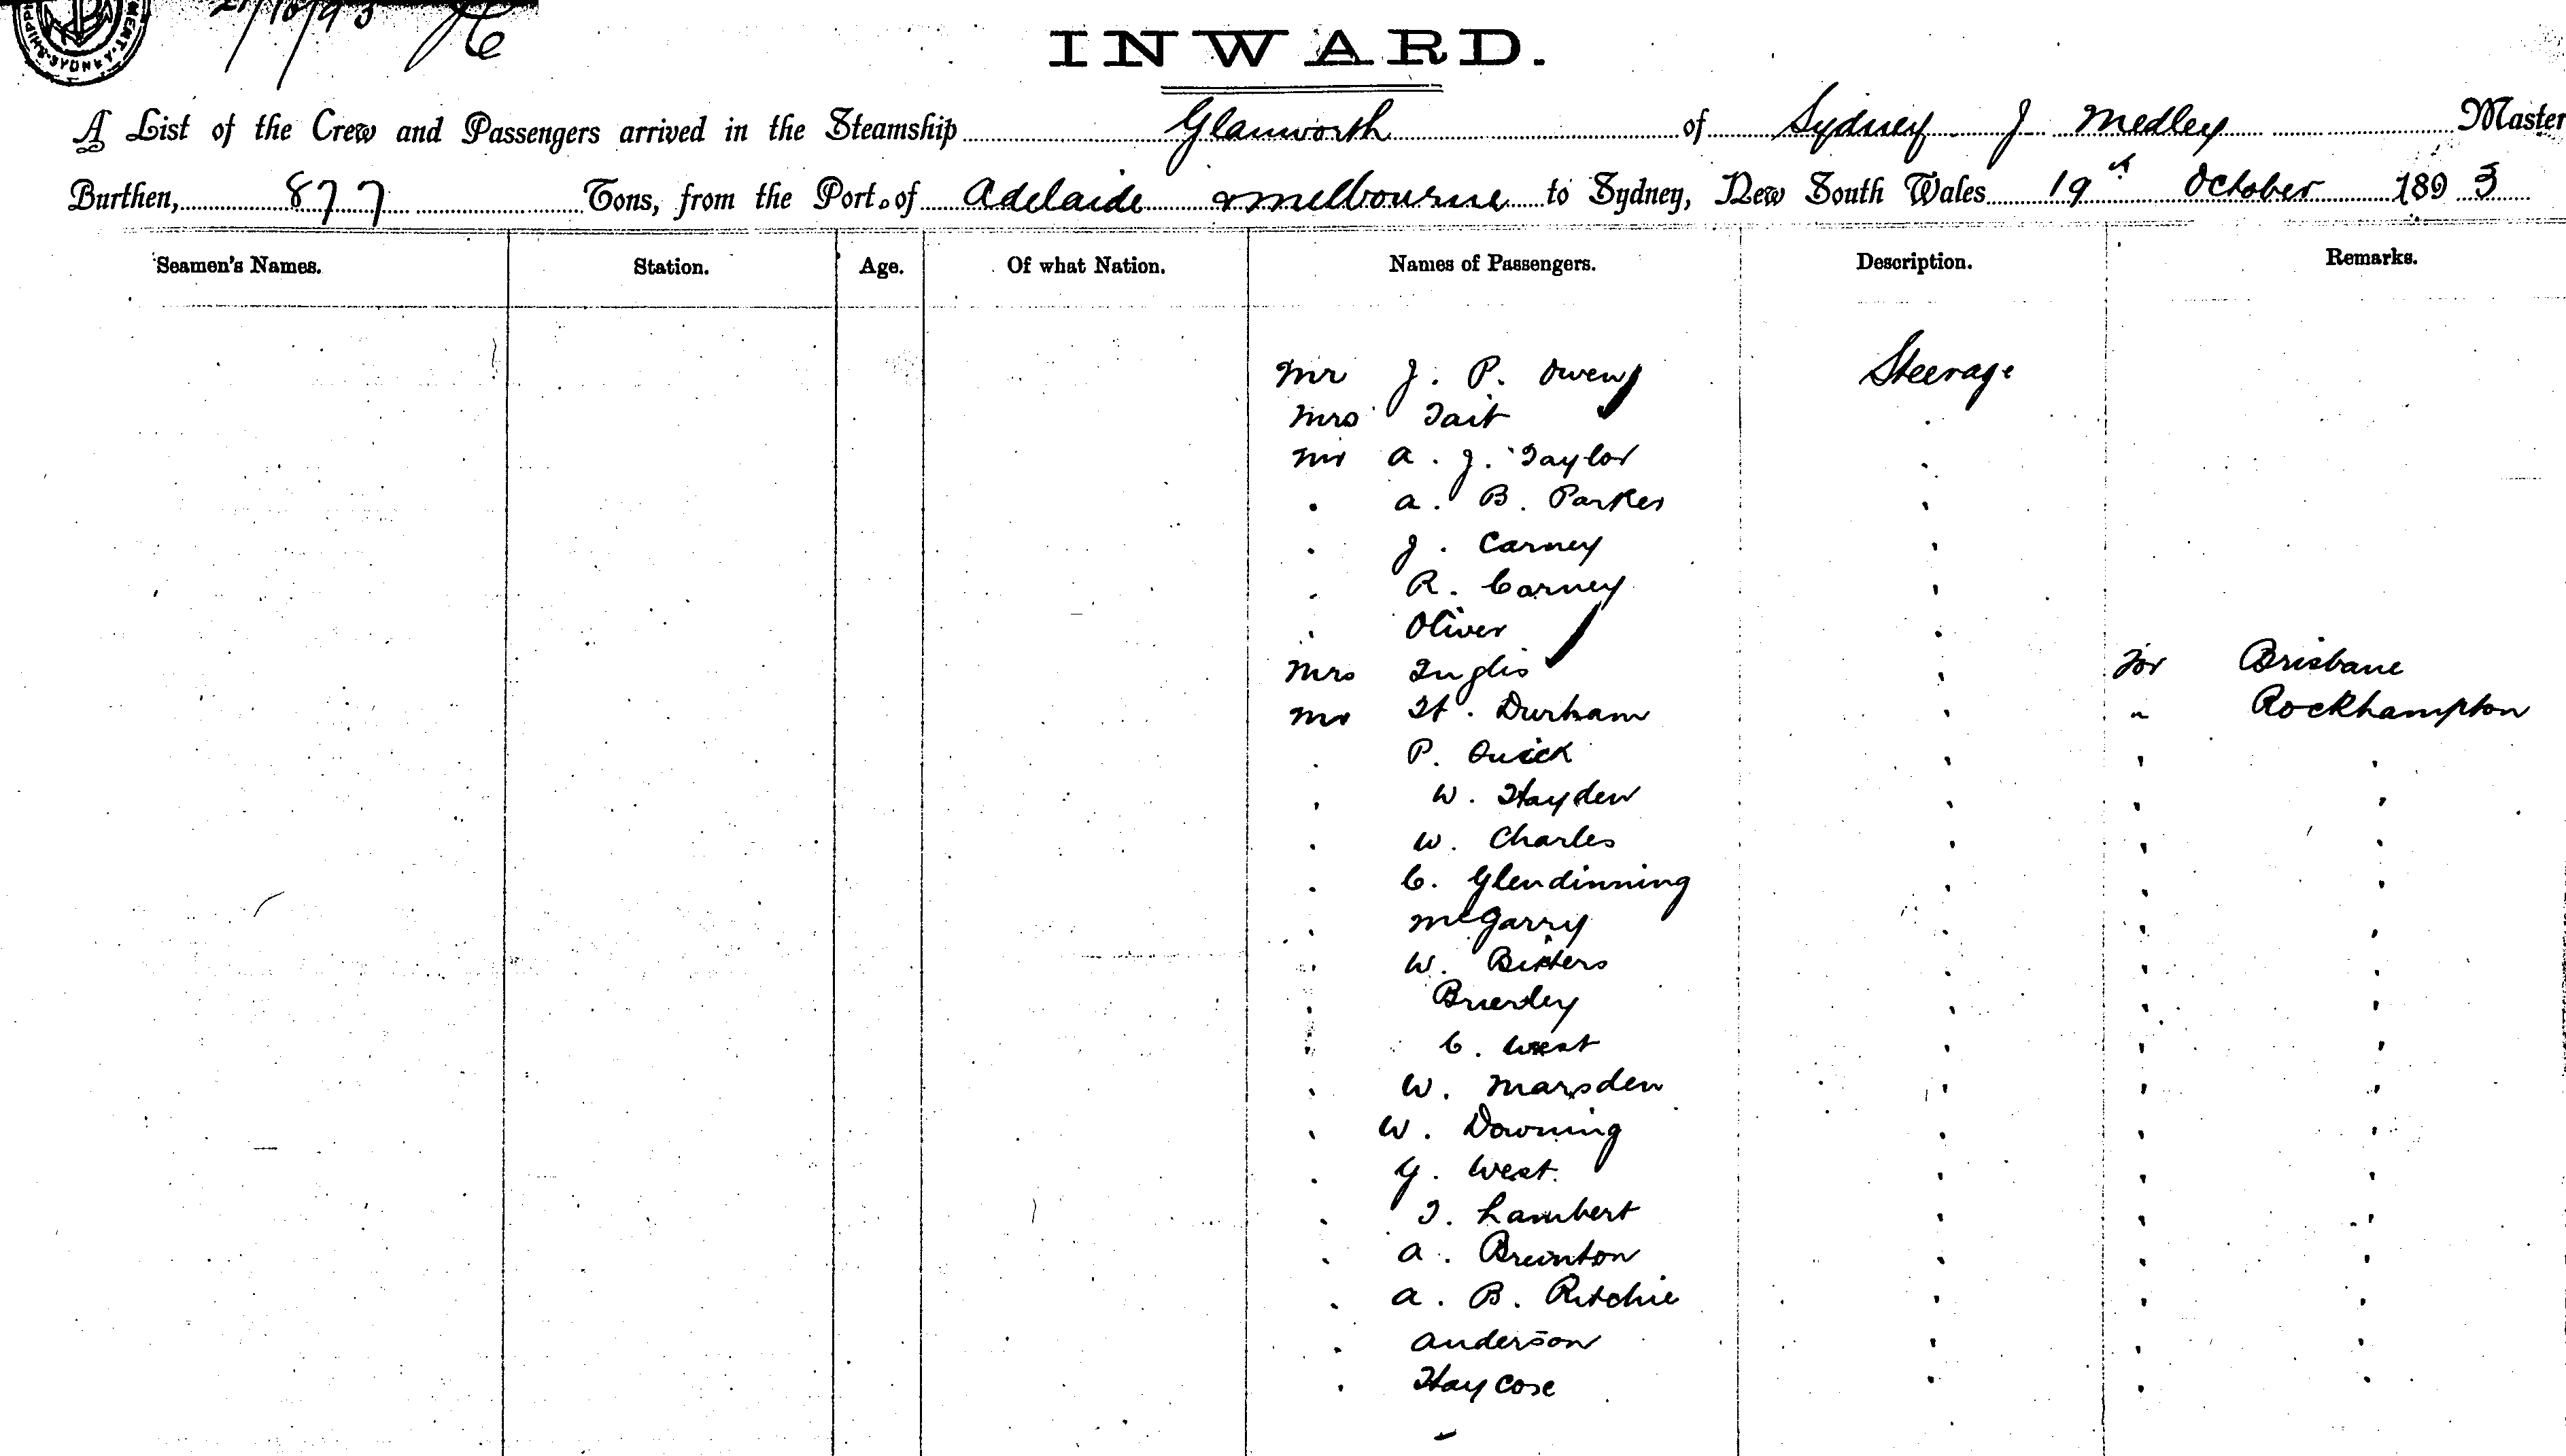 21/10/93
INWARD.
A List of the Crew and Passengers arrived in the Steamship Glanworth of Sydney J Medley Master
Burthen, 877 Tons, from the Port of Adelaide & Melbourne to Sydney, New South Wales 19th October 1893
Seamen's Names. Station. Age. Of what Nation. Names of Passengers. Description. Remarks.
Mr J. P. Owen Steerage
Mrs Tait
Mr A. J. Taylor
. A. B. Parker
. J. Carney
. R. Carney
. Oliver
Mrs Inglis For Brisbane
Mr H. Durham " Rockhampton
. P. Quick
. W. Hayden
. W. Charles
. C. Glendinning
. McGarry
. W. Bitters
. Brierley
. C. West
. W. Marsden
. W. Downing
. G. West
. T. Lambert
. A. Brunton
. A. B. Ritchie
. Anderson
. Haycose